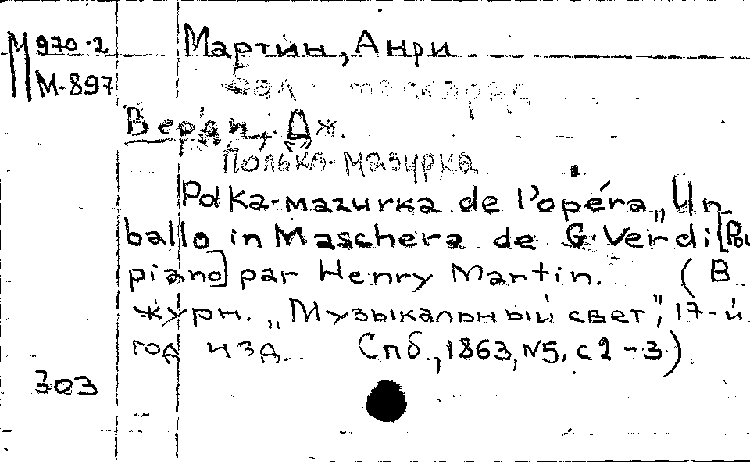 М 970-2 Мартин, Анри
М-897 Бал-маскарад
Верди, Дж.
Полька-мазурка
Polka-mazurka de l'opéra „Un
ballo in Maschera de G. Verdi [Pou
piano] par Henry Martin. (В
журн. „Музыкальный свет", 17-й
год изд. Спб., 1863, N5, с 2-3)
303